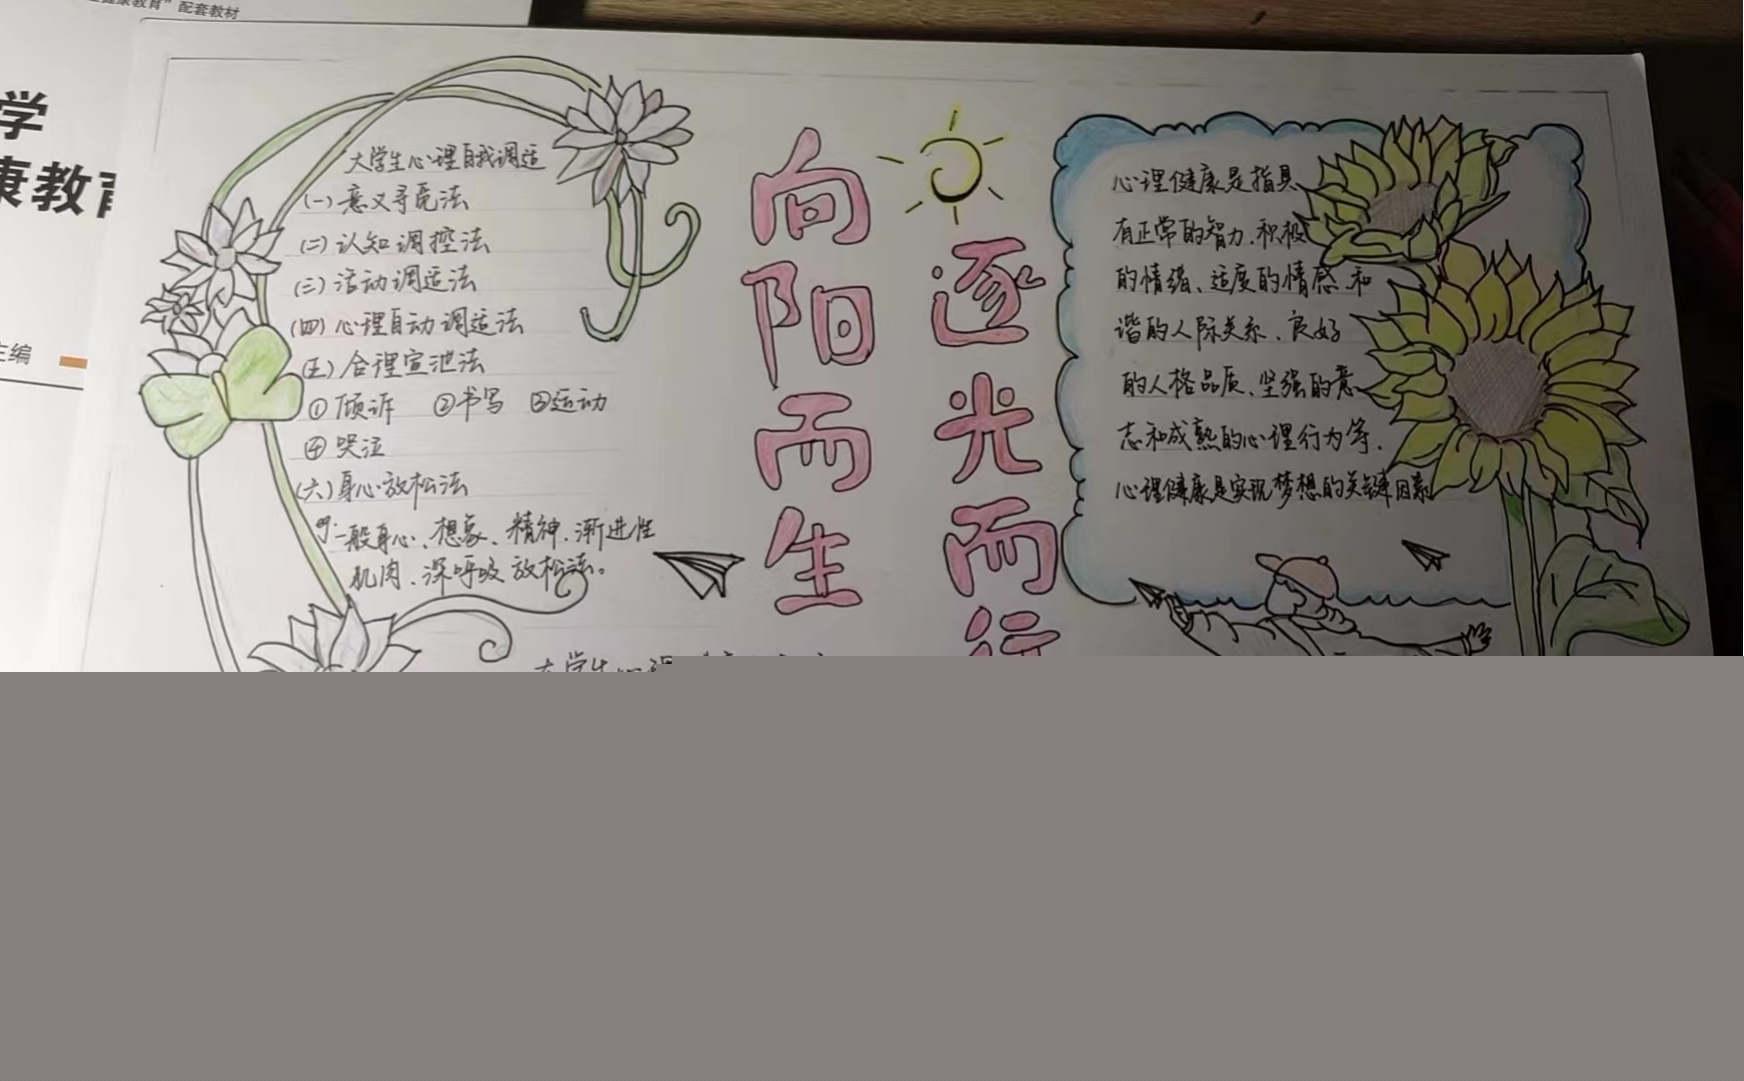 健康教育”配套教材
学
康教育
主编
大学生心理自我调适
(一)意义寻觅法
(二)认知调控法
(三)活动调适法
(四)心理自动调适法
(五)合理宣泄法
①倾诉 ②书写 ③运动
④哭泣
(六)身心放松法
一般身心、想象、精神、渐进性
肌肉、深呼吸放松法。
向阳而生
逐光而行
心理健康是指具
有正常的智力、积极
的情绪、适度的情感、和
谐的人际关系、良好
的人格品质、坚强的意
志和成熟的心理行为等.
心理健康是实现梦想的关键因素